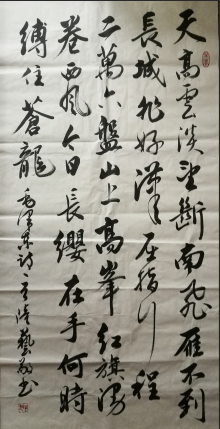 天高雲淡望斷南飛雁不到
長城非好漢屈指行程
二萬六盤山上高峯紅旗漫
卷西風今日長纓在手何時
縛住蒼龍 毛澤東詩 藝 書